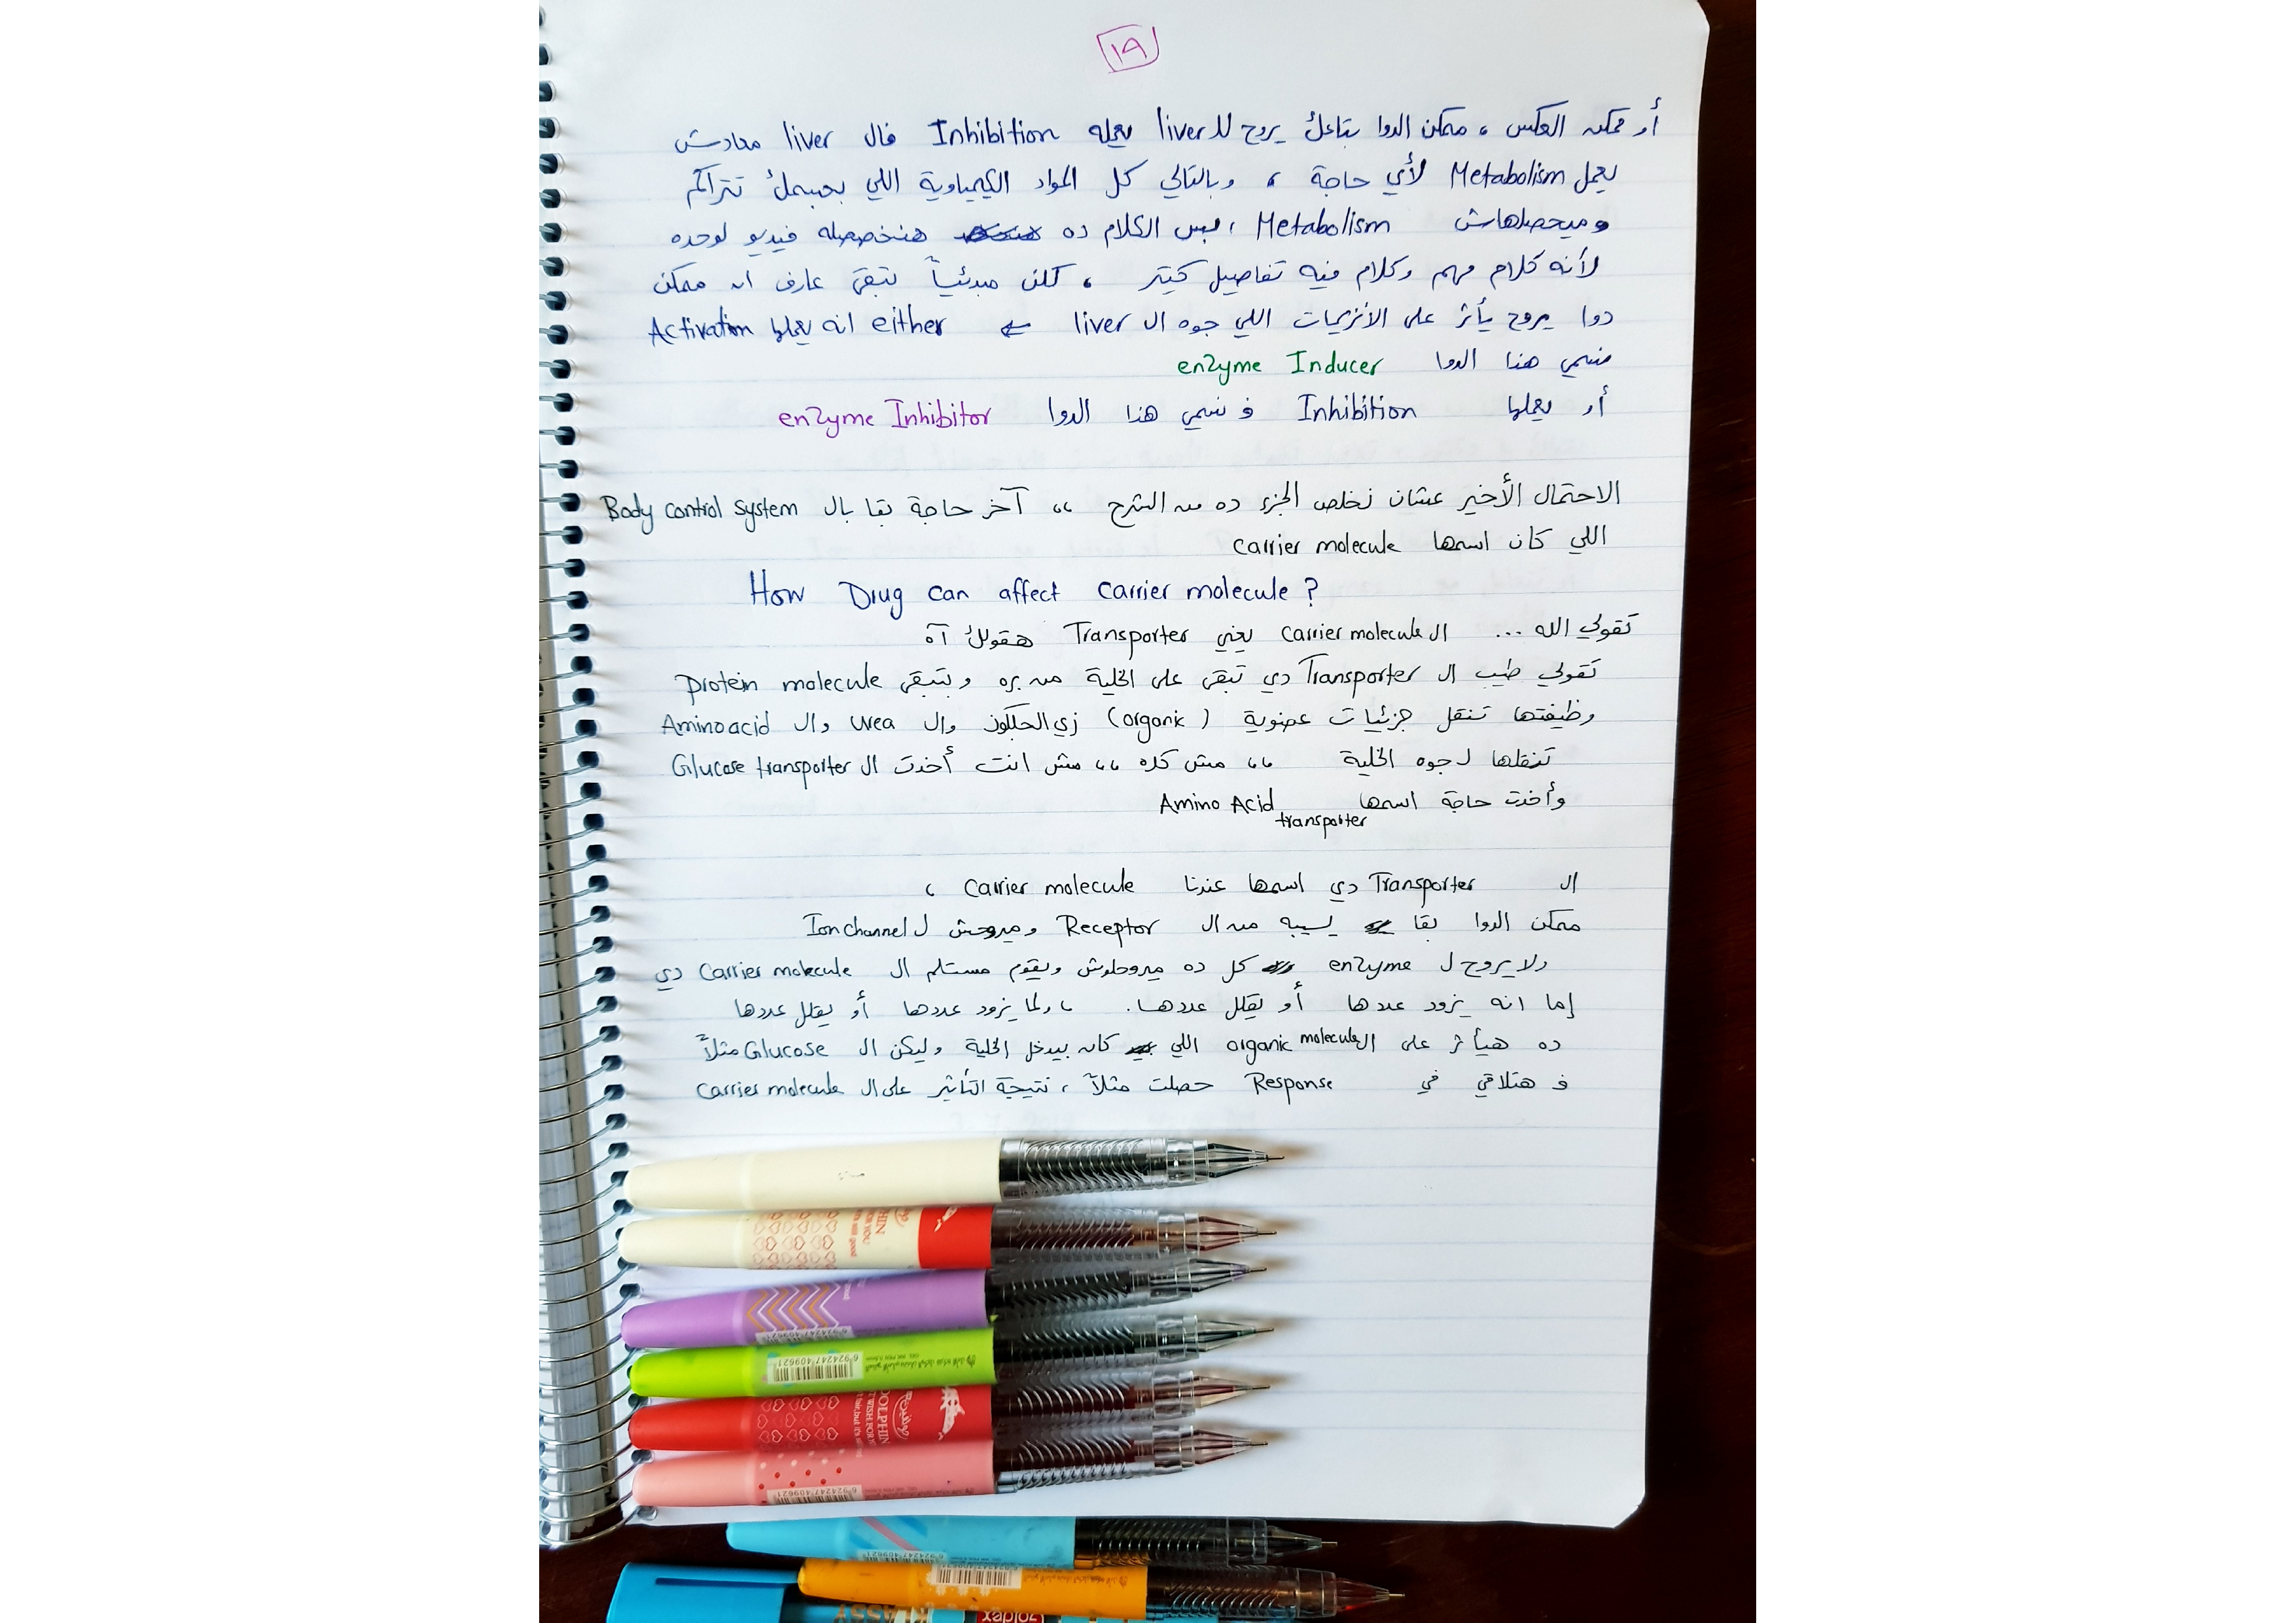 ١٩
أو ممكن العكس ، ممكن الدوا بتاعك يروح للـ liver يعمله Inhibition فال liver معادش
يعمل Metabolism لأي حاجة ، وبالتالي كل المواد الكيمياوية اللي بجسمك تتراكم
وميحصلهاش Metabolism ، بس الكلام ده هنخصصله فيديو لوحده
لأنه كلام مهم وكلام فيه تفاصيل كتير ، لكن مبدئياً تبقى عارف ان ممكن
دوا يروح يأثر على الانزيمات اللي جوه ال liver ⇐ either انه يعملها Activation
فنسمي هذا الدوا enzyme Inducer
أو يعملها Inhibition فنسمي هذا الدوا enzyme Inhibitor
الاحتمال الأخير عشان نخلص الجزء ده من الشرح ،، آخر حاجة بقا بال Body control system
اللي كان اسمها carrier molecule
How Drug can affect carrier molecule ?
تقولي الله ... ال carrier molecule يعني Transporter هقولك آه
تقولي طيب ال Transporter دي تبقى على الخلية من بره وبتبقى protein molecule
وظيفتها تنقل جزئيات عضوية (organic) زي الجلكوز وال urea وال Amino acid
تنقلها لجوه الخلية ،، مش كده ،، مش انت أخدت ال Glucose transporter
وأخدت حاجة اسمها Amino Acid transporter
ال Transporter دي اسمها عندنا carrier molecule ،
ممكن الدوا بقا يسيبه من ال Receptor وميروحش ل Ion channel
ولا يروح ل enzyme كل ده ميروحلوش ويقوم مستلم ال carrier molecule دي
إما انه يزود عددها أو يقلل عددها. ، ولما يزود عددها أو يقلل عددها
ده هيأثر على ال organic molecule اللي كان بيدخل الخلية وليكن ال Glucose مثلاً
ف هتلاقي في Response حصلت مثلاً ، نتيجة التأثير على ال carrier molecule
6 924247 409621
6 924247 409621
DOLPHIN
6 924247 409621
6 924247 409621
6 924247 409621
KLASSY
Goldex